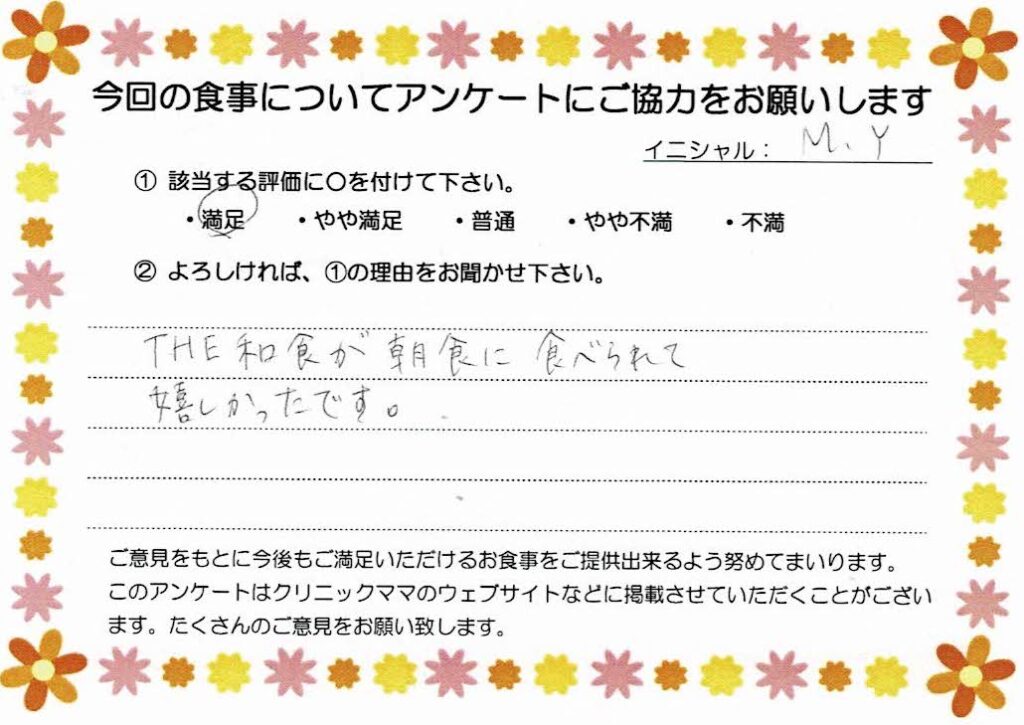 今回の食事についてアンケートにご協力をお願いします
イニシャル： M、Y
① 該当する評価に〇を付けて下さい。
・満足 ・やや満足 ・普通 ・やや不満 ・不満
② よろしければ、①の理由をお聞かせ下さい。
THE和食が朝食に食べられて
嬉しかったです。
ご意見をもとに今後もご満足いただけるお食事をご提供出来るよう努めてまいります。
このアンケートはクリニックママのウェブサイトなどに掲載させていただくことがござい
ます。たくさんのご意見をお願い致します。